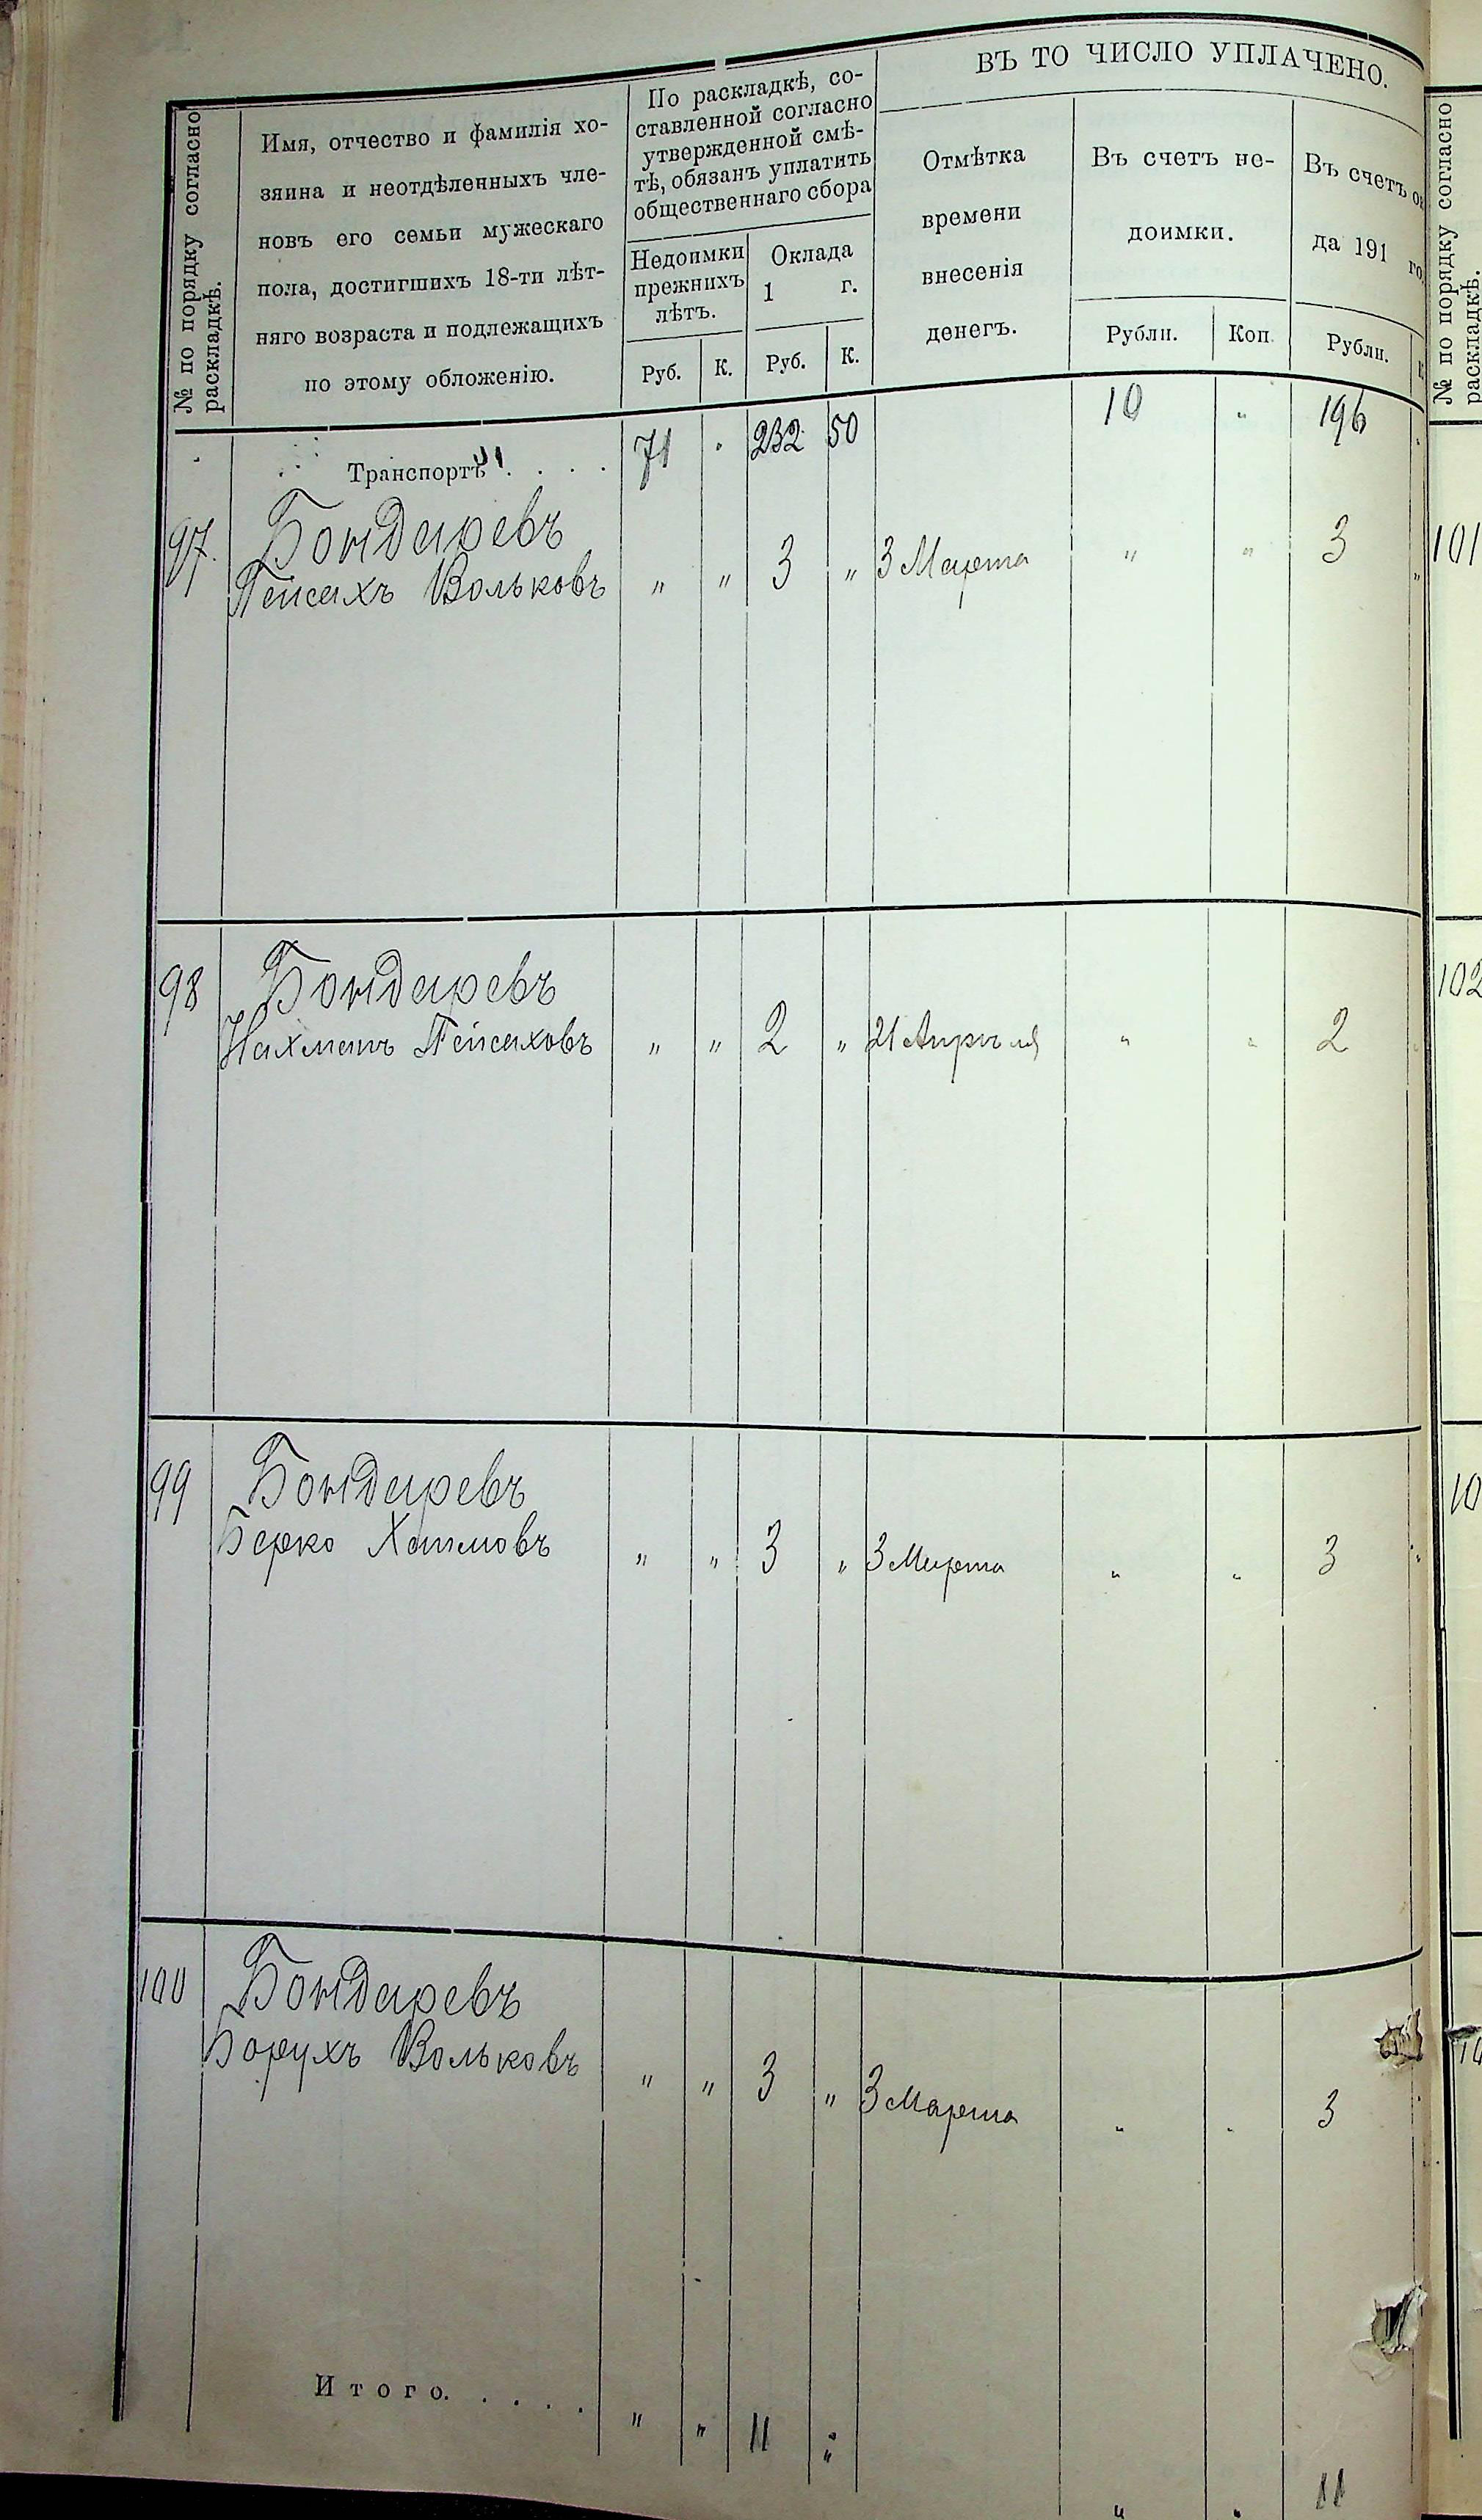 № по порядку согласно
раскладкѣ.
Имя, отчество и фамилія хо-
зяина и неотдѣленныхъ чле-
новъ его семьи мужескаго
пола, достигшихъ 18-ти лѣт-
няго возраста и подлежащихъ
по этому обложенію.
По раскладкѣ, со-
ставленной согласно
утвержденной смѣ-
тѣ, обязанъ уплатить
общественнаго сбора
Недоимки
прежнихъ
лѣтъ.
Руб. К.
Оклада
1 г.
Руб. К.
ВЪ ТО ЧИСЛО УПЛАЧЕНО.
Отмѣтка
времени
внесенія
денегъ.
Въ счетъ не-
доимки.
Рубли. Коп.
Въ счетъ
да 191 го
Рубли.
Транспортъ . . . . 71 " 232 50 10 " 196
97. Бондаревъ
Пейсахъ Вольковъ " " 3 " 3 Марта " " 3 "
98 Бондаревъ
Нахманъ Пейсаховъ " " 2 " 21 Апрѣля " " 2
99 Бондаревъ
Берко Хаимовъ " " 3 " 3 Марта " " 3 "
100 Бондаревъ
Борухъ Вольковъ " " 3 " 3 Марта " " 3
Итого. . . . . " " 11 " " " 11
№ по порядку согласно
раскладкѣ.
101
102
10